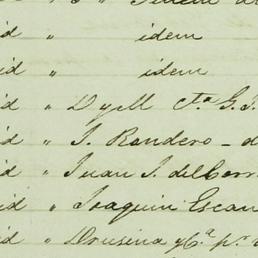 id " idem
id " idem
id " Dyell Cta G. J.
id " J. Bandero - d
id " Juan J. del Corr
id " Joaquin Escan
id " Drusina y Ca. pr.